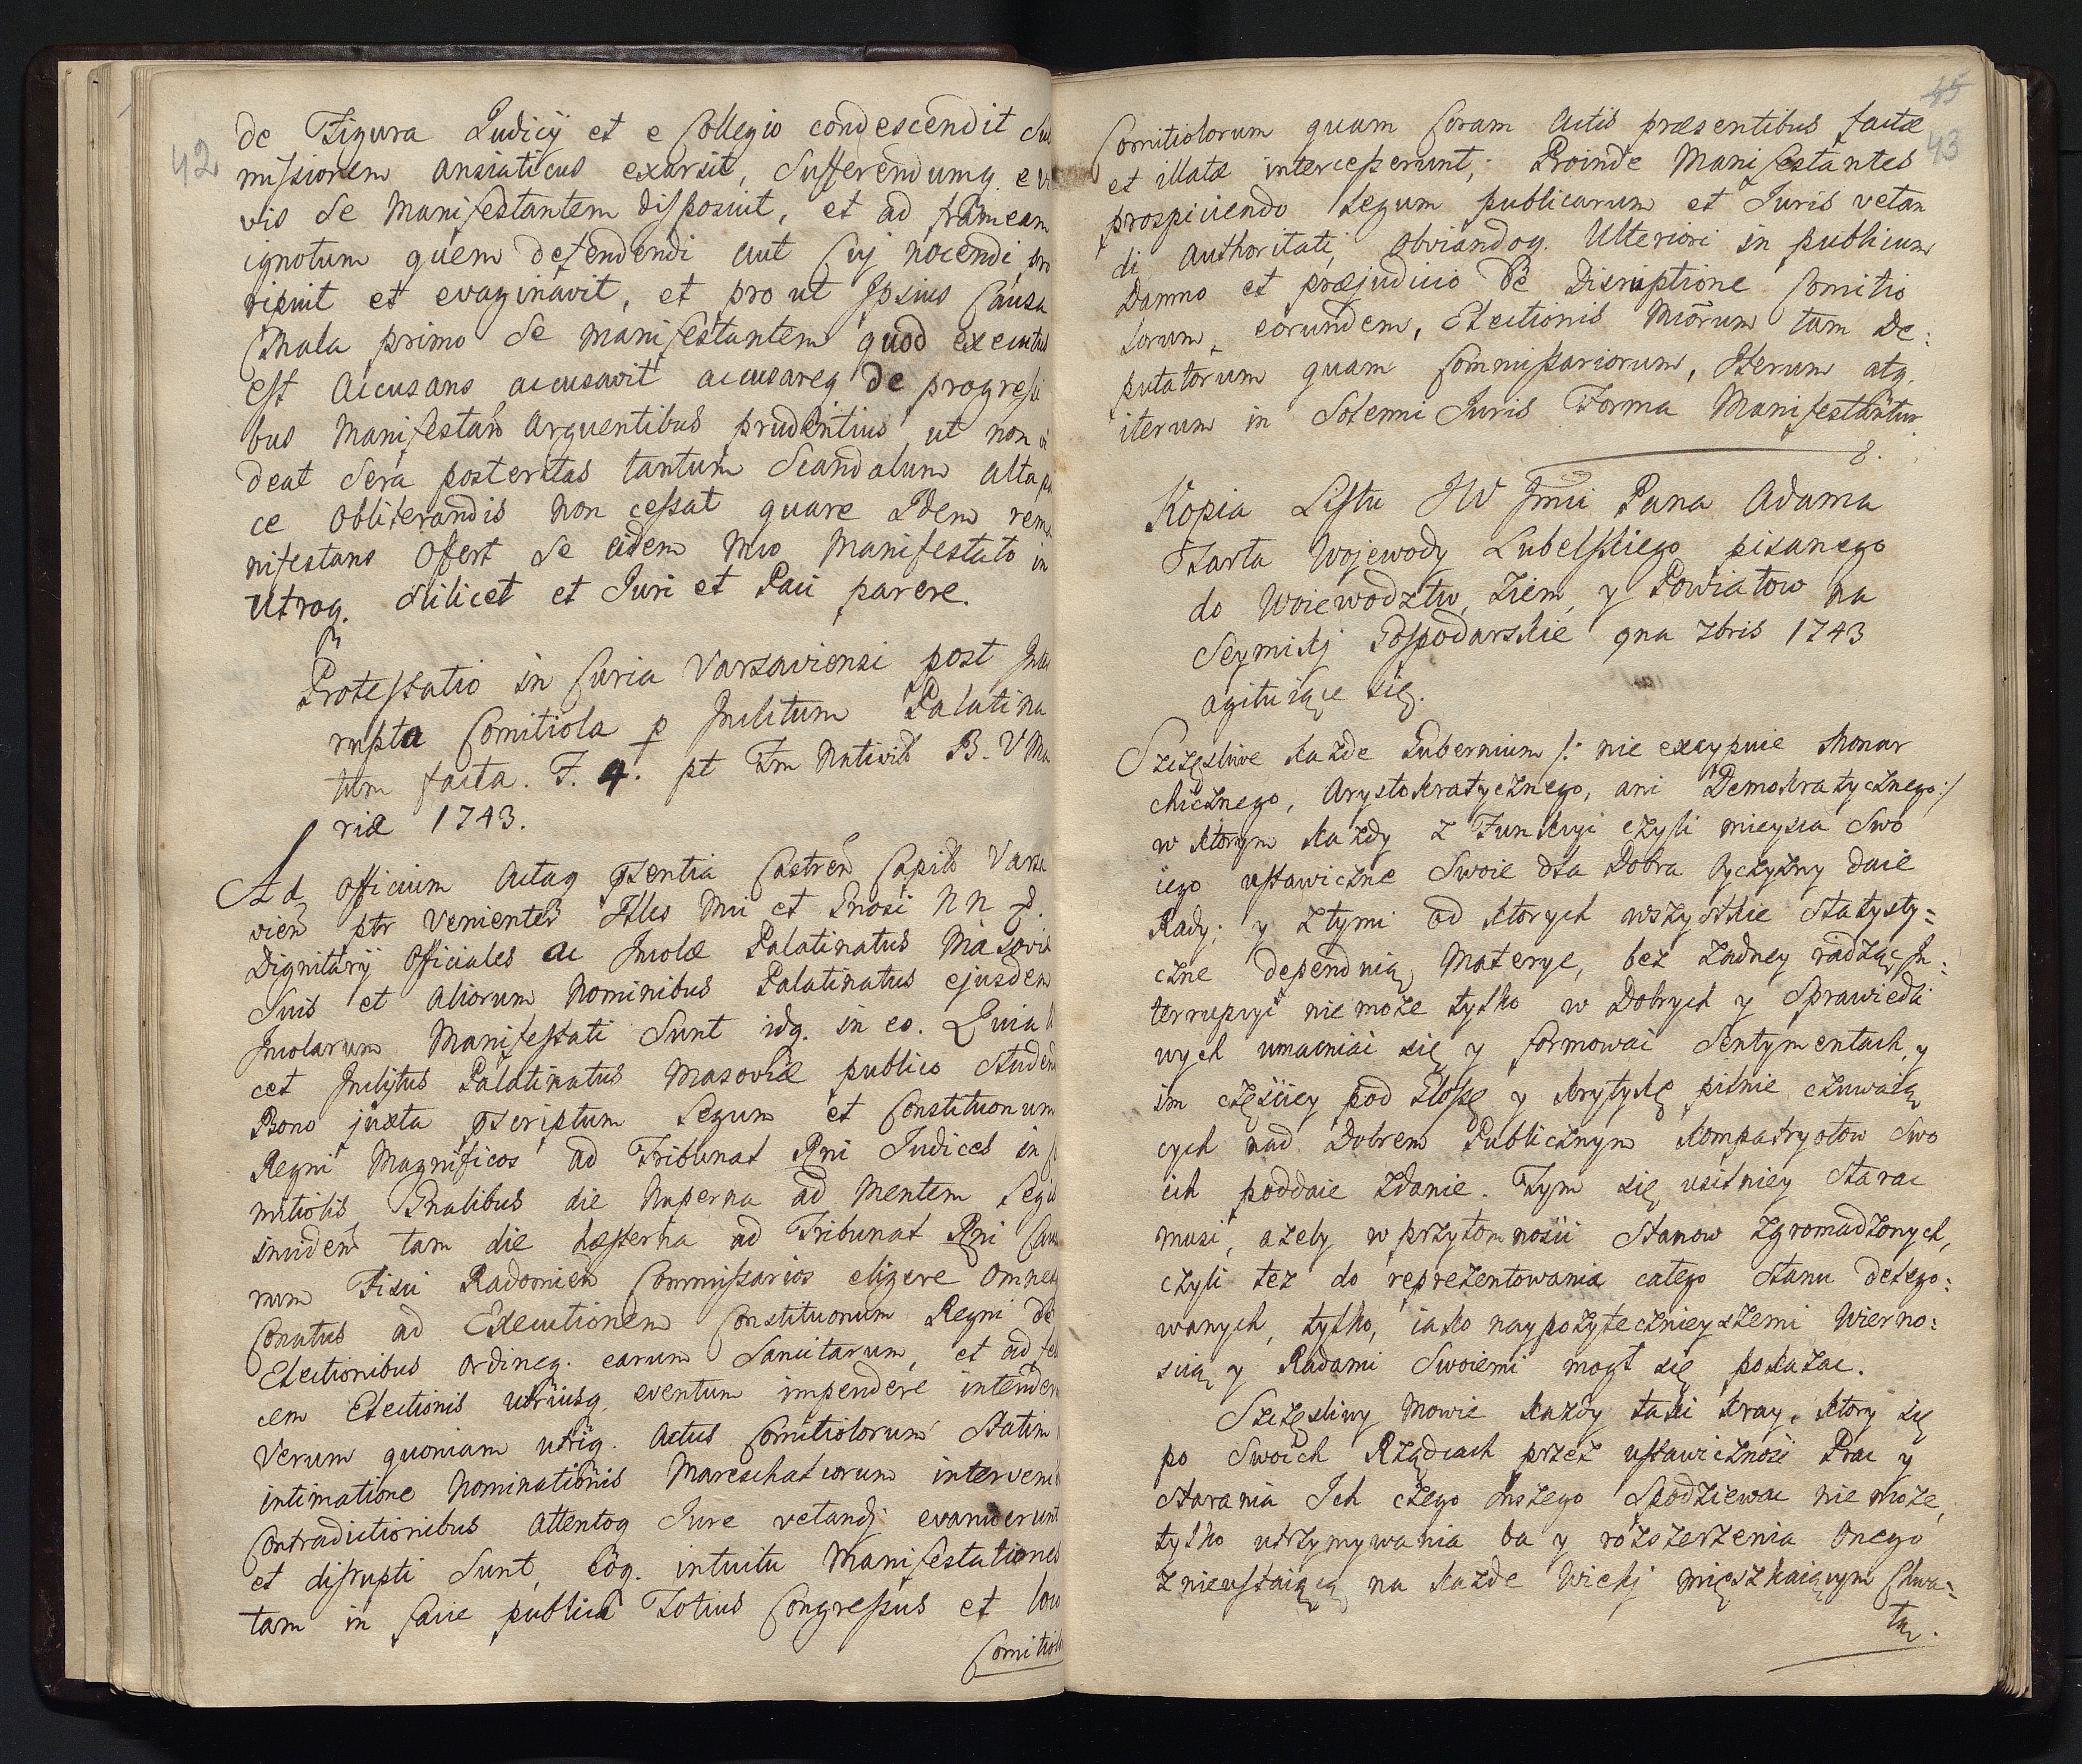 42
de Figura Judicij et e Collegio condescendit
missionem ansiaticus exarsit, Sufferendumq.
vis Se Manifestantem disposuit, et ad frameam
ignotum quem defendendi aut Cuj nocendi,
ripuit et evaginavit, et pro ut Ipsius Causa
Mala primo Se manifestantem quod
est Accusans accusavit accusareq de progressi
bus Manifestan arguentibus prudentius, ut non
deat Sera posteritas tantum Scandalum alta
ce obliterandis non cessat quare Idem
nifestans Offert Se eidem Mro Manifestato in
Utroq. Scilicet et Juri et Paci parere.
Protestatio in Curia Varsaviensi post
rupta Comitiola p Inclitum Palatina
tum facta. F. 4. pt Fm Nativit B. V Ma
riæ 1743.
Ad Officium Actaq psentia Castren Capit Varsa
vien ptr Venientes Mci et Gnosi N N
Dignitarij Officiales ac Incolæ Palatinatus Masovi
Suis et Aliorum Nominibus Palatinatus ejusdem
Incolarum Manifestati Sunt idq. in eo. Quia
cet Inclytus Palatinatus Masoviæ publico
Bono juxta pscriptum Legum et Constituonum
Regni Magnificos ad Tribunal Rni Judices in
mitiolis Gnalibus die Nuperna ad Mentem
tam die hesterna ad Tribunal Rni
rum Fisci Radomien Commissarios eligere Omnes
Conatus ad Executionem Constituonum Regni de
Electionibus Ordineq. earum Sancitarum, et ad
cem Electionis utriusq. eventum impendere
Verum quoniam utriq. Actus Comitiolorum Statim
intimatione Nominationis Mareschalcorum
Contradictionibus Attentoq Jure vetandj evanuerunt
et disrupti Sunt, Eoq. intuitu Manifestationes
tam in facie publica Totius Congressus et
45
43
Comitiolorum quam Coram Actis præsentibus factæ
et illatæ interceperunt; Proinde Manifestantes
prospiciendo Legum publicarum et Juris vetan
di Authoritati, Obviandoq. Ulteriori in publicum
Damno et præjudicio De Disruptione Comitio
lorum, eorundem, Electionis Mcorum tam De:
putatorum quam Commissariorum, Iterum atq.
iterum in Solenni Juris Forma Manifestantur.
8.
Kopia Listu JW Jmci Pana Adama
Tarła Wojewody Lubelskiego pisanego
do Woiewodztw, Ziem, y Powiatow na
Seymikj Gospodarskie 9na 7bris 1743
agituiące się.
Szczęsliwe każde Gubernium /: nie excypuie Monar
chicznego, Arystokratycznego, ani Demokratycznego:/
w ktorym każdy z Funkcyi czyli mieysca Swo
iego ustawiczne Swoie dla Dobra Oyczyzny daie
Rady; y z tymi od ktorych wszystkie Statysty=
czne dependuią Materye, bez żadney radząc In:
terrupcyi nie może tylko w Dobrych y Sprawiedli
wych umacniać się y formować Sentymentach, y
im częsciey pod Glossę y krytykę pilnie czuwaią
cych nad Dobrem Publicznym kompatryotow Swo
ich poddaie Zdanie. Tym się usilniey Starac
musi, ażeby w przytomnosci Stanow zgromadzonych,
czyli też do reprezentowania całego Stanu delego:
wanych, tylko, iako naypożytecznieyszemi Wierno:
scią y Radami Swoiemi mogł się pokazac.
Szczęsliwy Mowie każdy taki kray, ktory się
po Swoich Rządcach przez ustawicznosć Prac y
starania Ich czego inszego Spodziewac nie może,
tylko utrzymywania ba y rozszerzenia Onego
z nieustaiącą na każde Wiekj mięszkaiącym Chwa=
łą.